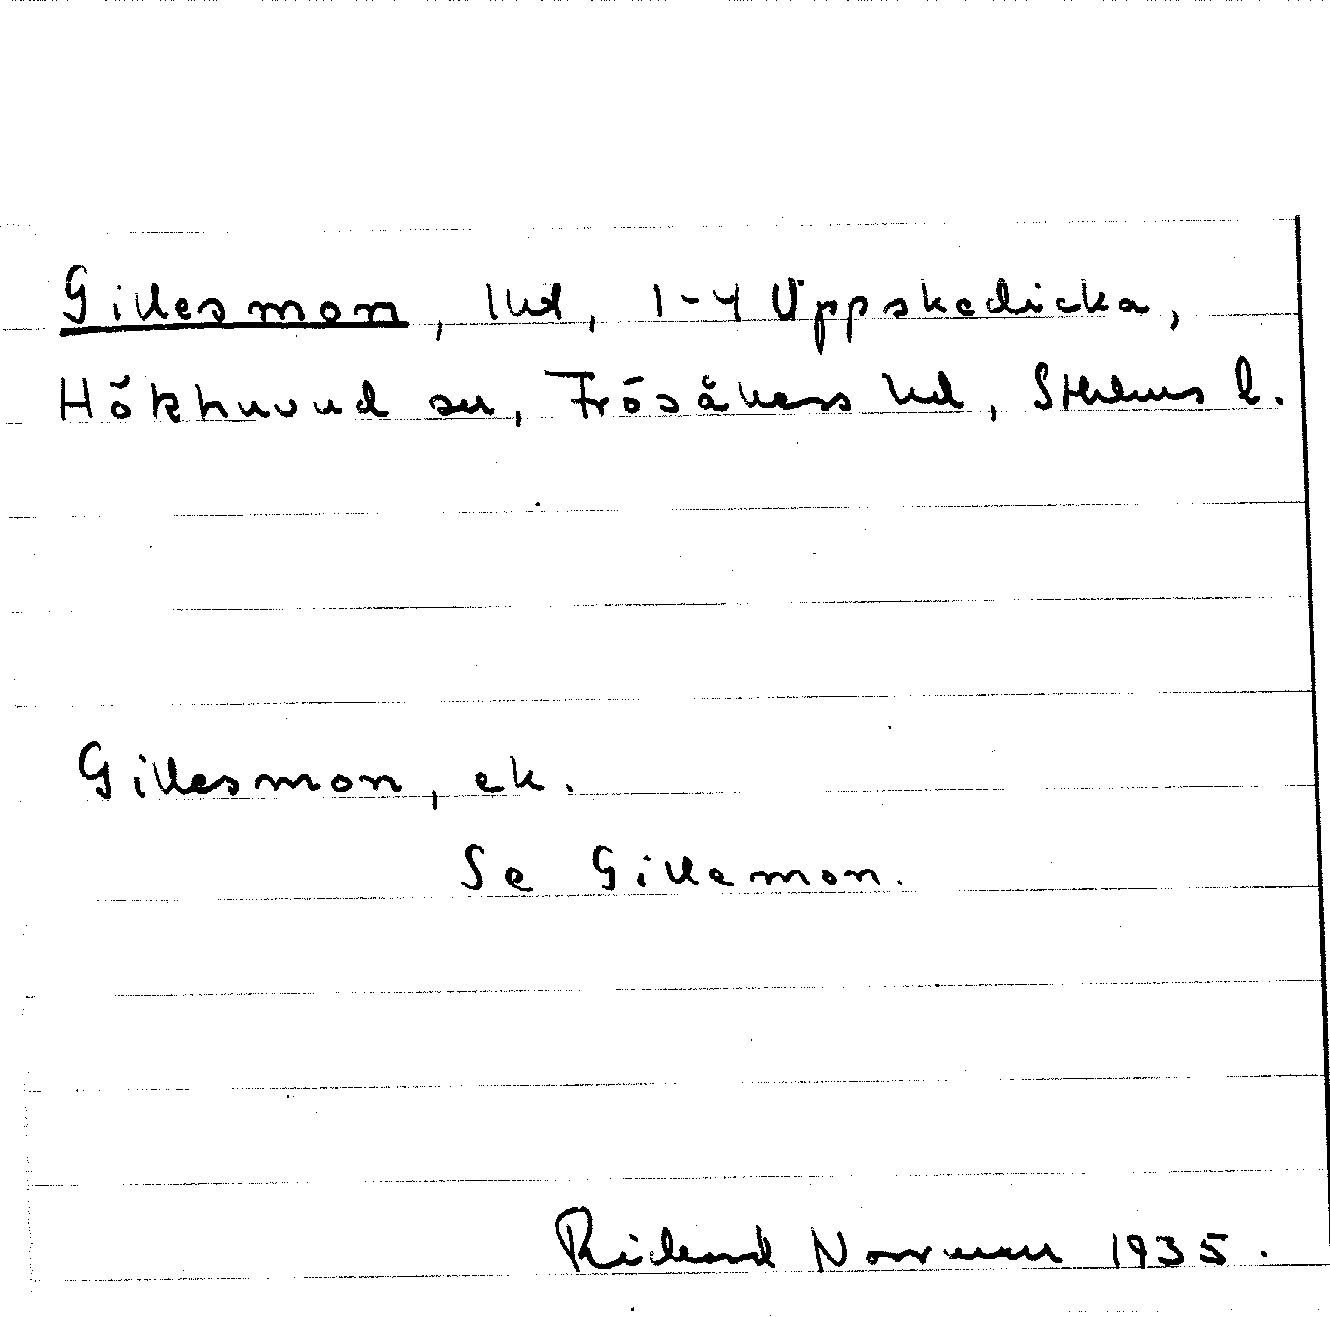 Gillesmon, lhd, 1-4 Uppskedicka,
Hökhuvud sn, Frösåkers hd, Sthlms l.
Gillesmon, ek.
Se Gillemon.
Rickard Norrman 1935.